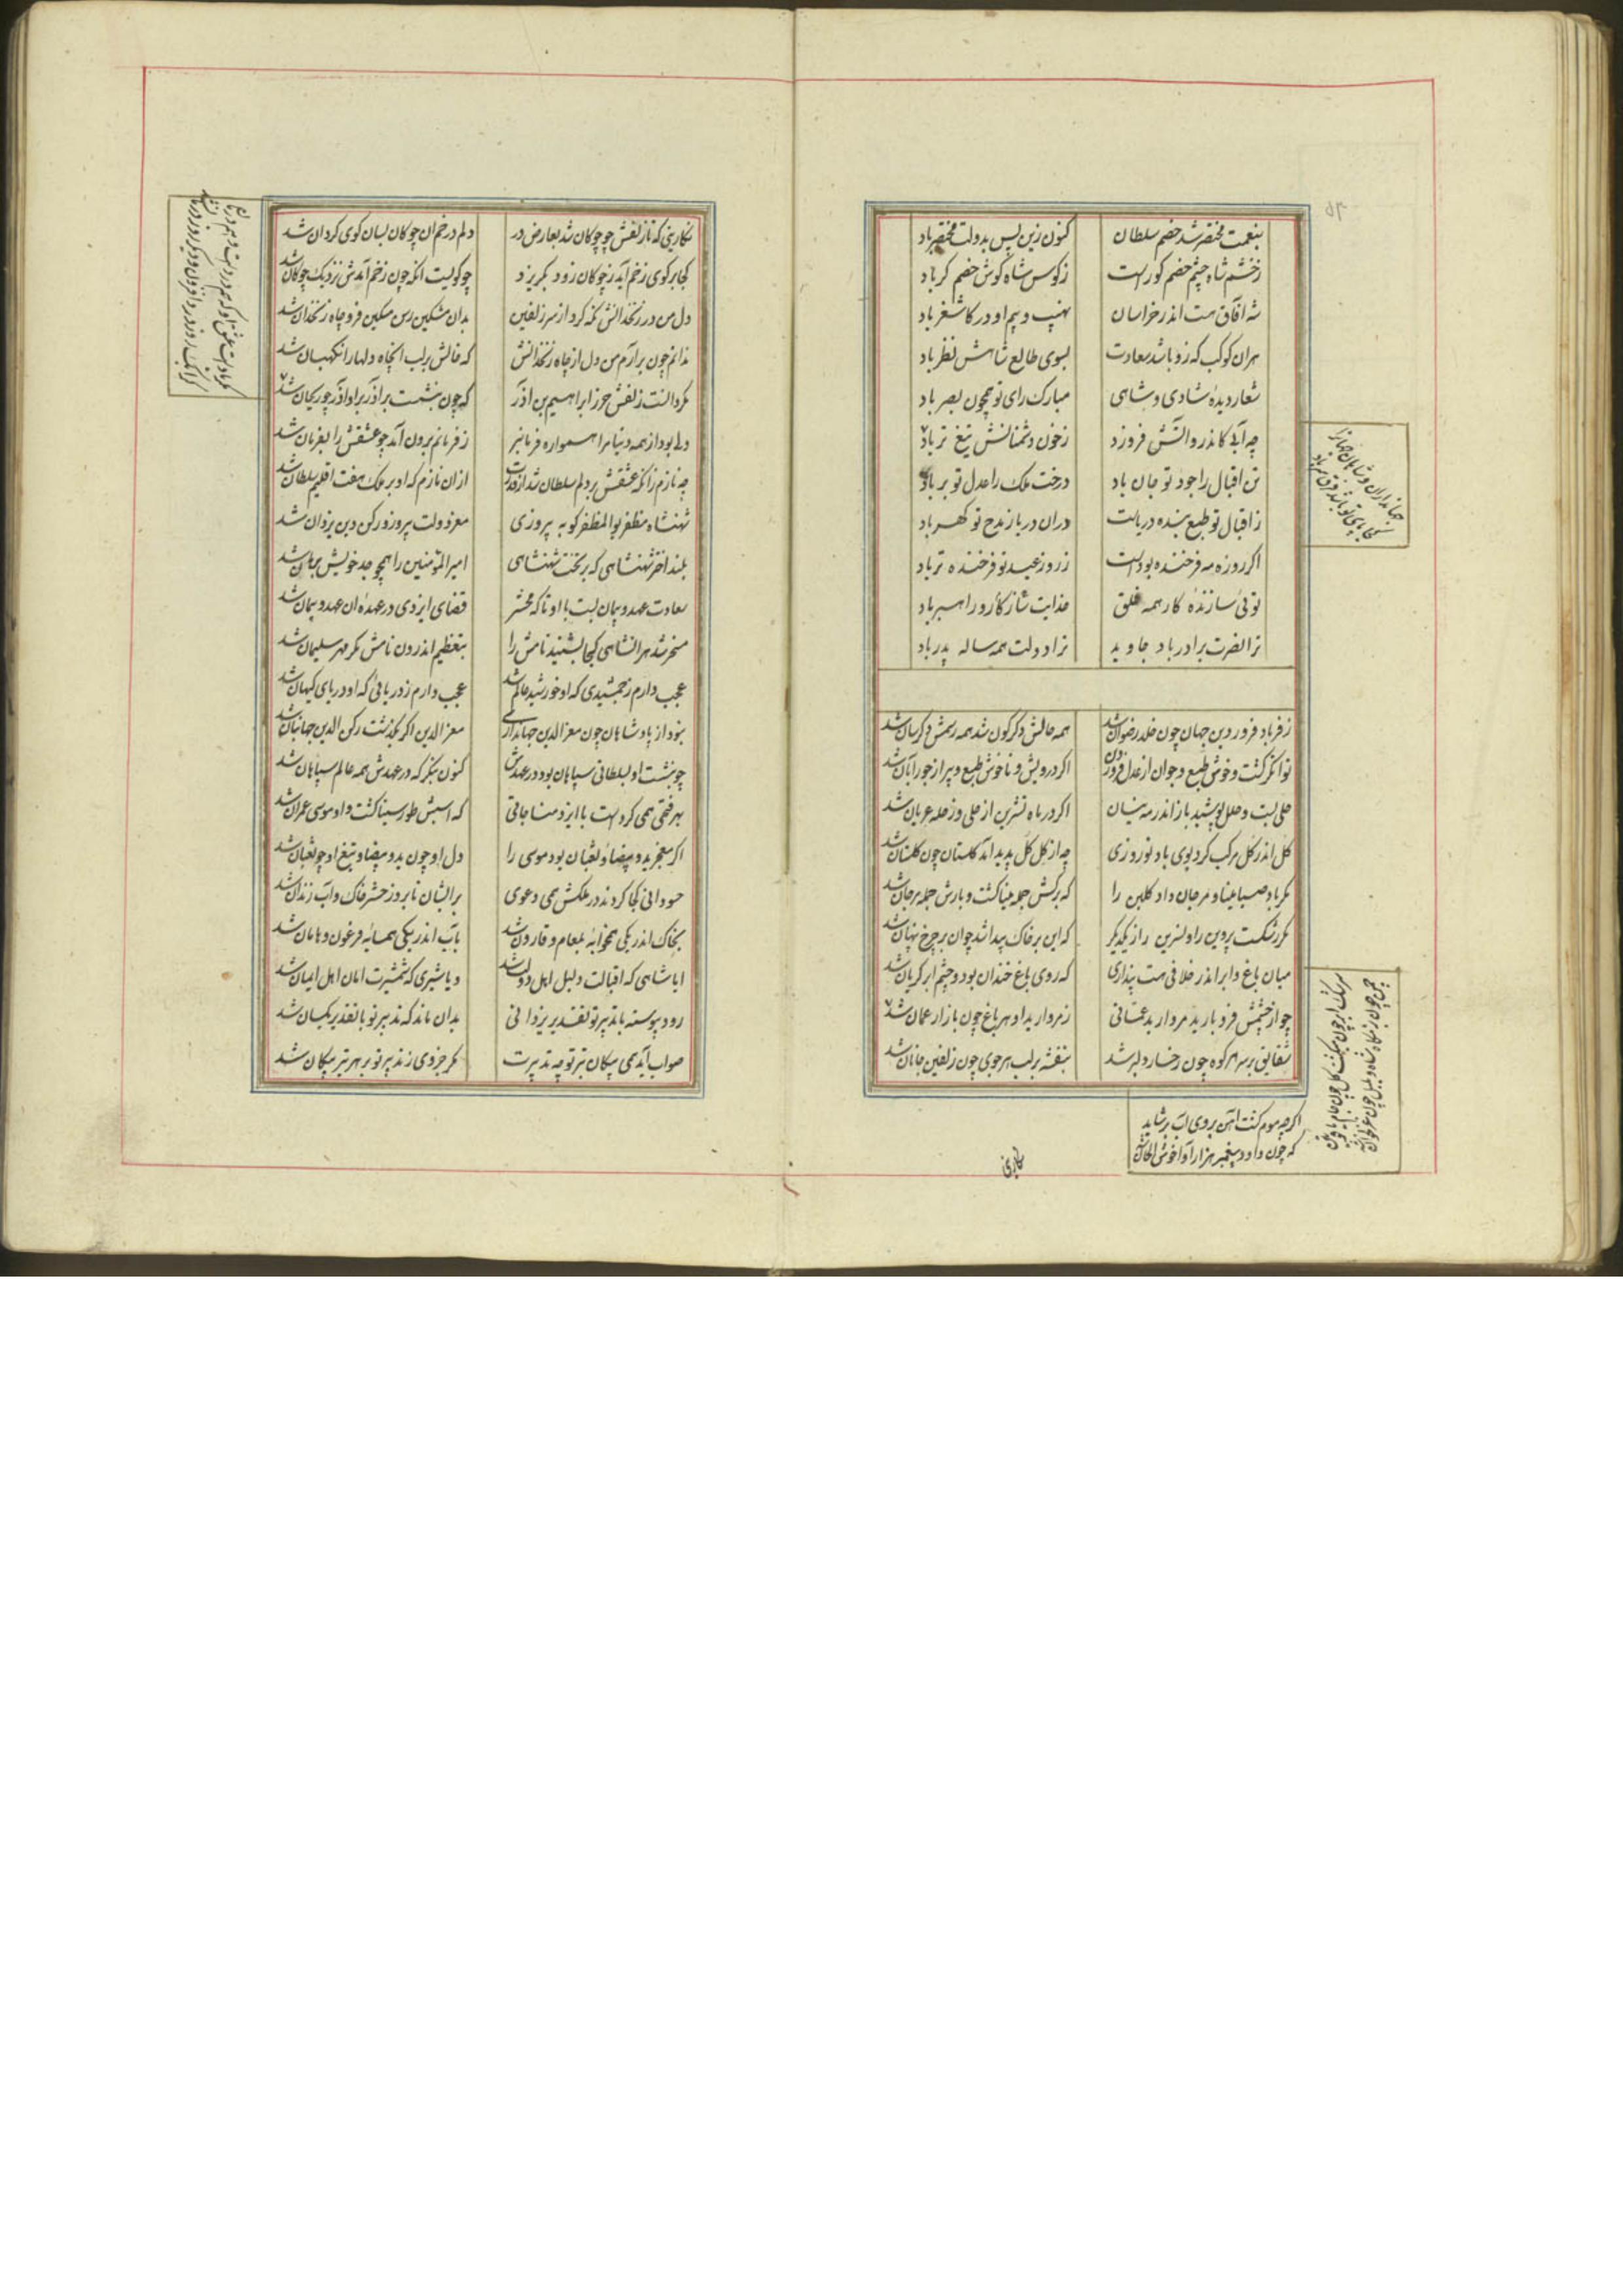 بنعمت مختصر شد خصم سلطان کنون زین پس بدولت مختصر باد
زخشم شاه چشم خصم کورست زکوس شاه گوش خصم کر باد
شه آفاق هست اندر خراسان نهیب و بیم او در کاشغر باد
هران کوکب که زو باشد سعادت بسوی طالع شاهش نظر باد
شعار دیدهٔ شادی و شاهی مبارک رای تو همچون بصر باد
چه آبی کاندرو آتش فروزد زخون دشمنانش تیغ تر باد
تن اقبال را جود تو جان باد درخت ملک را عدل تو بر باد
زاقبال تو طبع بنده دریاست دران دریا زمدح تو گهر باد
اکر روزه مه فرخنده بودست زروز عید تو فرخنده تر باد
توئی سازندهٔ کار همه خلق خدایت سازکار و راهبر باد
ترا نصرت برادر باد جاوید ترا دولت همه ساله پدر باد
جهانداران و شاهان جهانرا
کجا پای تو باشد فرق سر باد
زفر باد فروردین جهان چون خلد رضوان شد همه حالش دکرکون شد همه رسمش دکرسان شد
توانکر کشت و خوش طبع و جوان از عدل فروردین اکر درویش و ناخوش طبع و پیر از جور آبان شد
حلی بست و حلل پوشید باز اندر مه نیسان اکر در ماه تشرین از حلی وز حله عریان شد
گل اندر گل مرکب کرد بوی باد نوروزی چه از گل گل پدید آمد گلستان چون گلستان شد
مکر باد صبا مینا و مرجان داد گلبن را که برکش جمله مینا کشت و بارش جمله مرجان شد
مکر بشکست پروین را و نسرین را ز یکدیکر که این بر خاک پیدا شد چو آن بر چرخ پنهان شد
میان باغ و ابر اندر خلافی هست پنداری که روی باغ خندان بود و چشم ابر کریان شد
چو از چشمش فرو بارید مروارید عمانی زمروارید او هر باغ چون بازار عمان شد
شقایق بر سر هر کوه چون رخسار دلبر شد بنفشه بر لب هر جوی چون زلفین جانان شد
اکرچه موم کشت آهن بروی آب بر شاید
که چون داود پیغمبر هزار آوا خوش الحان شد
نکاری
نکارینی که تا زلفش چو چوکان شد بعارض در دلم در خم آن چوکان بسان کوی کردان شد
کجا بر کوی زخم آید ز چوکان زود بکریزد چو کویست آنکه چون زخم آمدش نزدیک چوکان شد
دل من در زنخدانش نکه کرد از سر زلفین بدان مشکین رسن مسکین فرو چاه زنخدان شد
ندانم چون برآرم من دل از چاه زنخدانش که خالش بر لب آنچاه دلها را نکهبان شد
مکر دانست زلفش حرز ابراهیم بن آذر که چون بنشست بر آذر بر او آذر چو ریحان شد
دلی بود از همه دنیا مرا همواره فرمانبر زفرمانم برون آمد چو عشقش را بفرمان شد
چه نازم زانکه عشقش بر دلم سلطان شد از قدرت ازان نازم که او بر ملک هفت اقلیم سلطان شد
شهنشاه مظفر بوالمظفر کو به پیروزی معز دولت پیروز و رکن دین یزدان شد
بلند اختر شهنشاهی که بر تخت شهنشاهی امیر المؤمنین را همچو جد خویش برهان شد
سعادت عهد و پیمان بست با او تا که محشر قضای ایزدی در عهدهٔ آن عهد و پیمان شد
مسخر شد هر انشاهی کجا بشنید نامش را بتعظیم اندرون نامش مکر مهر سلیمان شد
عجب دارم ز جمشیدی که او خورشید عالم شد عجب دارم ز دریائی که او دریای کیهان شد
نبود از پادشاهان چون معزالدین جهانداری معزالدین اکر بکذشت رکن الدین جهانبان شد
چو بنشست او بسلطانی سپاهان بود در عهدش کنون بنکر که در عهدش همه عالم سپاهان شد
بهر وقتی همی کردست با ایزد مناجاتی که اسبش طور سینا کشت و او موسی عمران شد
اکر معجز ید و بیضا و ثعبان بود موسی را دل او چون ید و بیضا و تیغ او چو ثعبان شد
حسودانی کجا کردند در ملکش همی دعوی بر ایشان تا بروز حشر خاک و آب زندان شد
بخاک اندر یکی همخوابهٔ بلعام و قارون شد بآب اندر یکی همسایهٔ فرعون و هامان شد
ایا شاهی که اقبالت دلیل اهل دولت شد و یا شیری که شمشیرت امان اهل ایمان شد
رود پیوسته با تدبیر تو تقدیر یزدانی بدان ماند که تدبیر تو با تقدیر یکسان شد
صواب آید همی پیکان تیر تو چه تدبیرت مکر جزوی ز تدبیر تو بر هر تیر پیکان شد